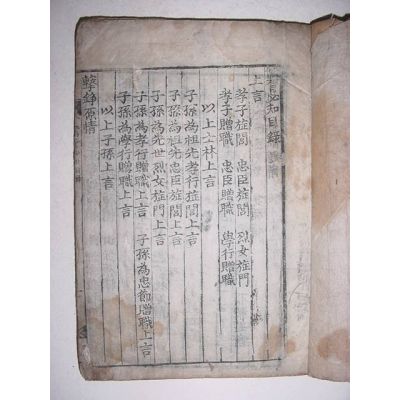 必知目錄
上言
孝子旌閭 忠臣旌閭 烈女旌門
孝子贈職 忠臣贈職 學行贈職
以上士林上言
子孫為祖先孝行旌閭上言
子孫為祖先忠臣旌閭上言
子孫為先世烈女旌門上言
子孫為孝行贈職上言 子孫為忠節贈職上言
子孫為學行贈職上言
以上子孫上言
擊錚原情